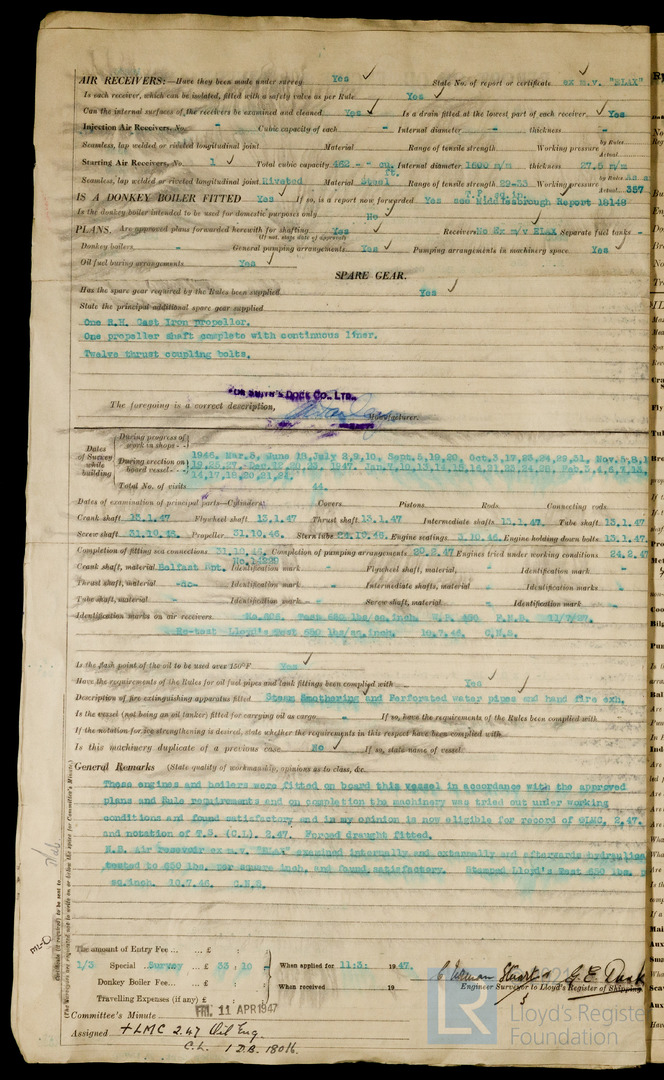 AIR RECEIVERS:—Have they been made under survey Yes ✓ State No. of report or certificate ex m.v. "ELAX"
Is each receiver, which can be isolated, fitted with a safety valve as per Rule Yes ✓
Can the internal surfaces of the receivers be examined and cleaned Yes ✓ Is a drain fitted at the lowest part of each receiver. ✓ Yes
Injection Air Receivers, No. - Cubic capacity of each - Internal diameter - thickness -
Seamless, lap welded or riveted longitudinal joint Material Range of tensile strength Working pressure by Rules Actual
Starting Air Receivers, No. 1 ✓ Total cubic capacity 462 - - cu. ft. Internal diameter 1600 m/m thickness 27.5 m/m
Seamless, lap welded or riveted longitudinal joint Riveted Material Steel Range of tensile strength 29-33 Working pressure by Rules Actual 357
IS A DONKEY BOILER FITTED Yes ✓ If so, is a report now forwarded Yes see Middlesbrough Report 18148
Is the donkey boiler intended to be used for domestic purposes only No ✓
PLANS. Are approved plans forwarded herewith for shafting Yes ✓ Receivers No Ex m/v ELAX Separate fuel tanks -
(If not, state date of approval)
Donkey boilers - General pumping arrangements Yes ✓ Pumping arrangements in machinery space Yes ✓
Oil fuel burning arrangements Yes ✓
SPARE GEAR.
Has the spare gear required by the Rules been supplied Yes ✓
State the principal additional spare gear supplied
One R.H. Cast Iron propeller.
One propeller shaft complete with continuous liner.
Twelve thrust coupling bolts.
FOR SMITH'S DOCK CO., LTD.,
The foregoing is a correct description, Manufacturer.
Dates of Survey while building
During progress of work in shops - -
During erection on board vessel - - 1946. Mar.8, June 18, July 2,9,10, Sept.5,19,20, Oct.3,17,23,24,29,31, Nov.5,8,1
19,25,27, Dec.12,20,23, 1947. Jan.7,10,13,14,15,16,21,23,24,28, Feb.3,4,6,7,13,
14,17,18,20,21,24.
Total No. of visits 44.
Dates of examination of principal parts—Cylinders Covers. Pistons. Rods. Connecting rods.
Crank shaft 13.1.47 Flywheel shaft 13.1.47 Thrust shaft 13.1.47 Intermediate shafts 13.1.47. Tube shaft 13.1.47
Screw shaft 31.10.46. Propeller 31.10.46. Stern tube 24.10.46. Engine seatings 3.10.46. Engine holding down bolts 13.1.47.
Completion of fitting sea connections 31.10.46. Completion of pumping arrangements 20.2.47 Engines tried under working conditions 24.2.47
Crank shaft, material Belfast Rpt. No.14220 Identification mark - Flywheel shaft, material - Identification mark -
Thrust shaft, material -do- Identification mark - Intermediate shafts, material - Identification marks -
Tube shaft, material - Identification mark - Screw shaft, material - Identification mark -
Identification marks on air receivers. Test 650 lbs/sq.inch.
Re-test Lloyd's Test 650 lbs/sq.inch. 10.7.46. C.N.S.
Is the flash point of the oil to be used over 150°F Yes ✓
Have the requirements of the Rules for oil fuel pipes and tank fittings been complied with Yes ✓
Description of fire extinguishing apparatus fitted Steam Smothering and Perforated water pipes and hand fire exh.
Is the vessel (not being an oil tanker) fitted for carrying oil as cargo - If so, have the requirements of the Rules been complied with
If the notation for ice strengthening is desired, state whether the requirements in this respect have been complied with
Is this machinery duplicate of a previous case No ✓ If so, state name of vessel
General Remarks (State quality of workmanship, opinions as to class, &c.
These engines and boilers were fitted on board this vessel in accordance with the approved
plans and Rule requirements and on completion the machinery was tried out under working
conditions and found satisfactory and in my opinion is now eligible for record of OLMC, 2,47.
and notation of T.S. (C.L). 2.47. Forced draught fitted.
N.B. Air reservoir ex m.v. "ELAX" examined internally and externally and afterwards hydraulica
tested to 650 lbs. per square inch, and found satisfactory. Stamped Lloyd's Test 650 lbs. p
sq.inch. 10.7.46. C.N.S.
Certificate (if required) to be sent to
(The Surveyors are requested not to write on or below the space for Committee's Minute.)
The amount of Entry Fee ... £ : :
1/3 Special Survey ... £ 33 : 10 : When applied for 11:3: 1947.
Donkey Boiler Fee... ... £ : : When received 19
Travelling Expenses (if any) £ : :
Engineer Surveyor to Lloyd's Register of Shipping
Committee's Minute FRI. 11 APR 1947
Assigned + LMC 2.47 Oil Eng
C.L. 1 D.B. 180 lb.
LR Lloyd's Registe
Foundation